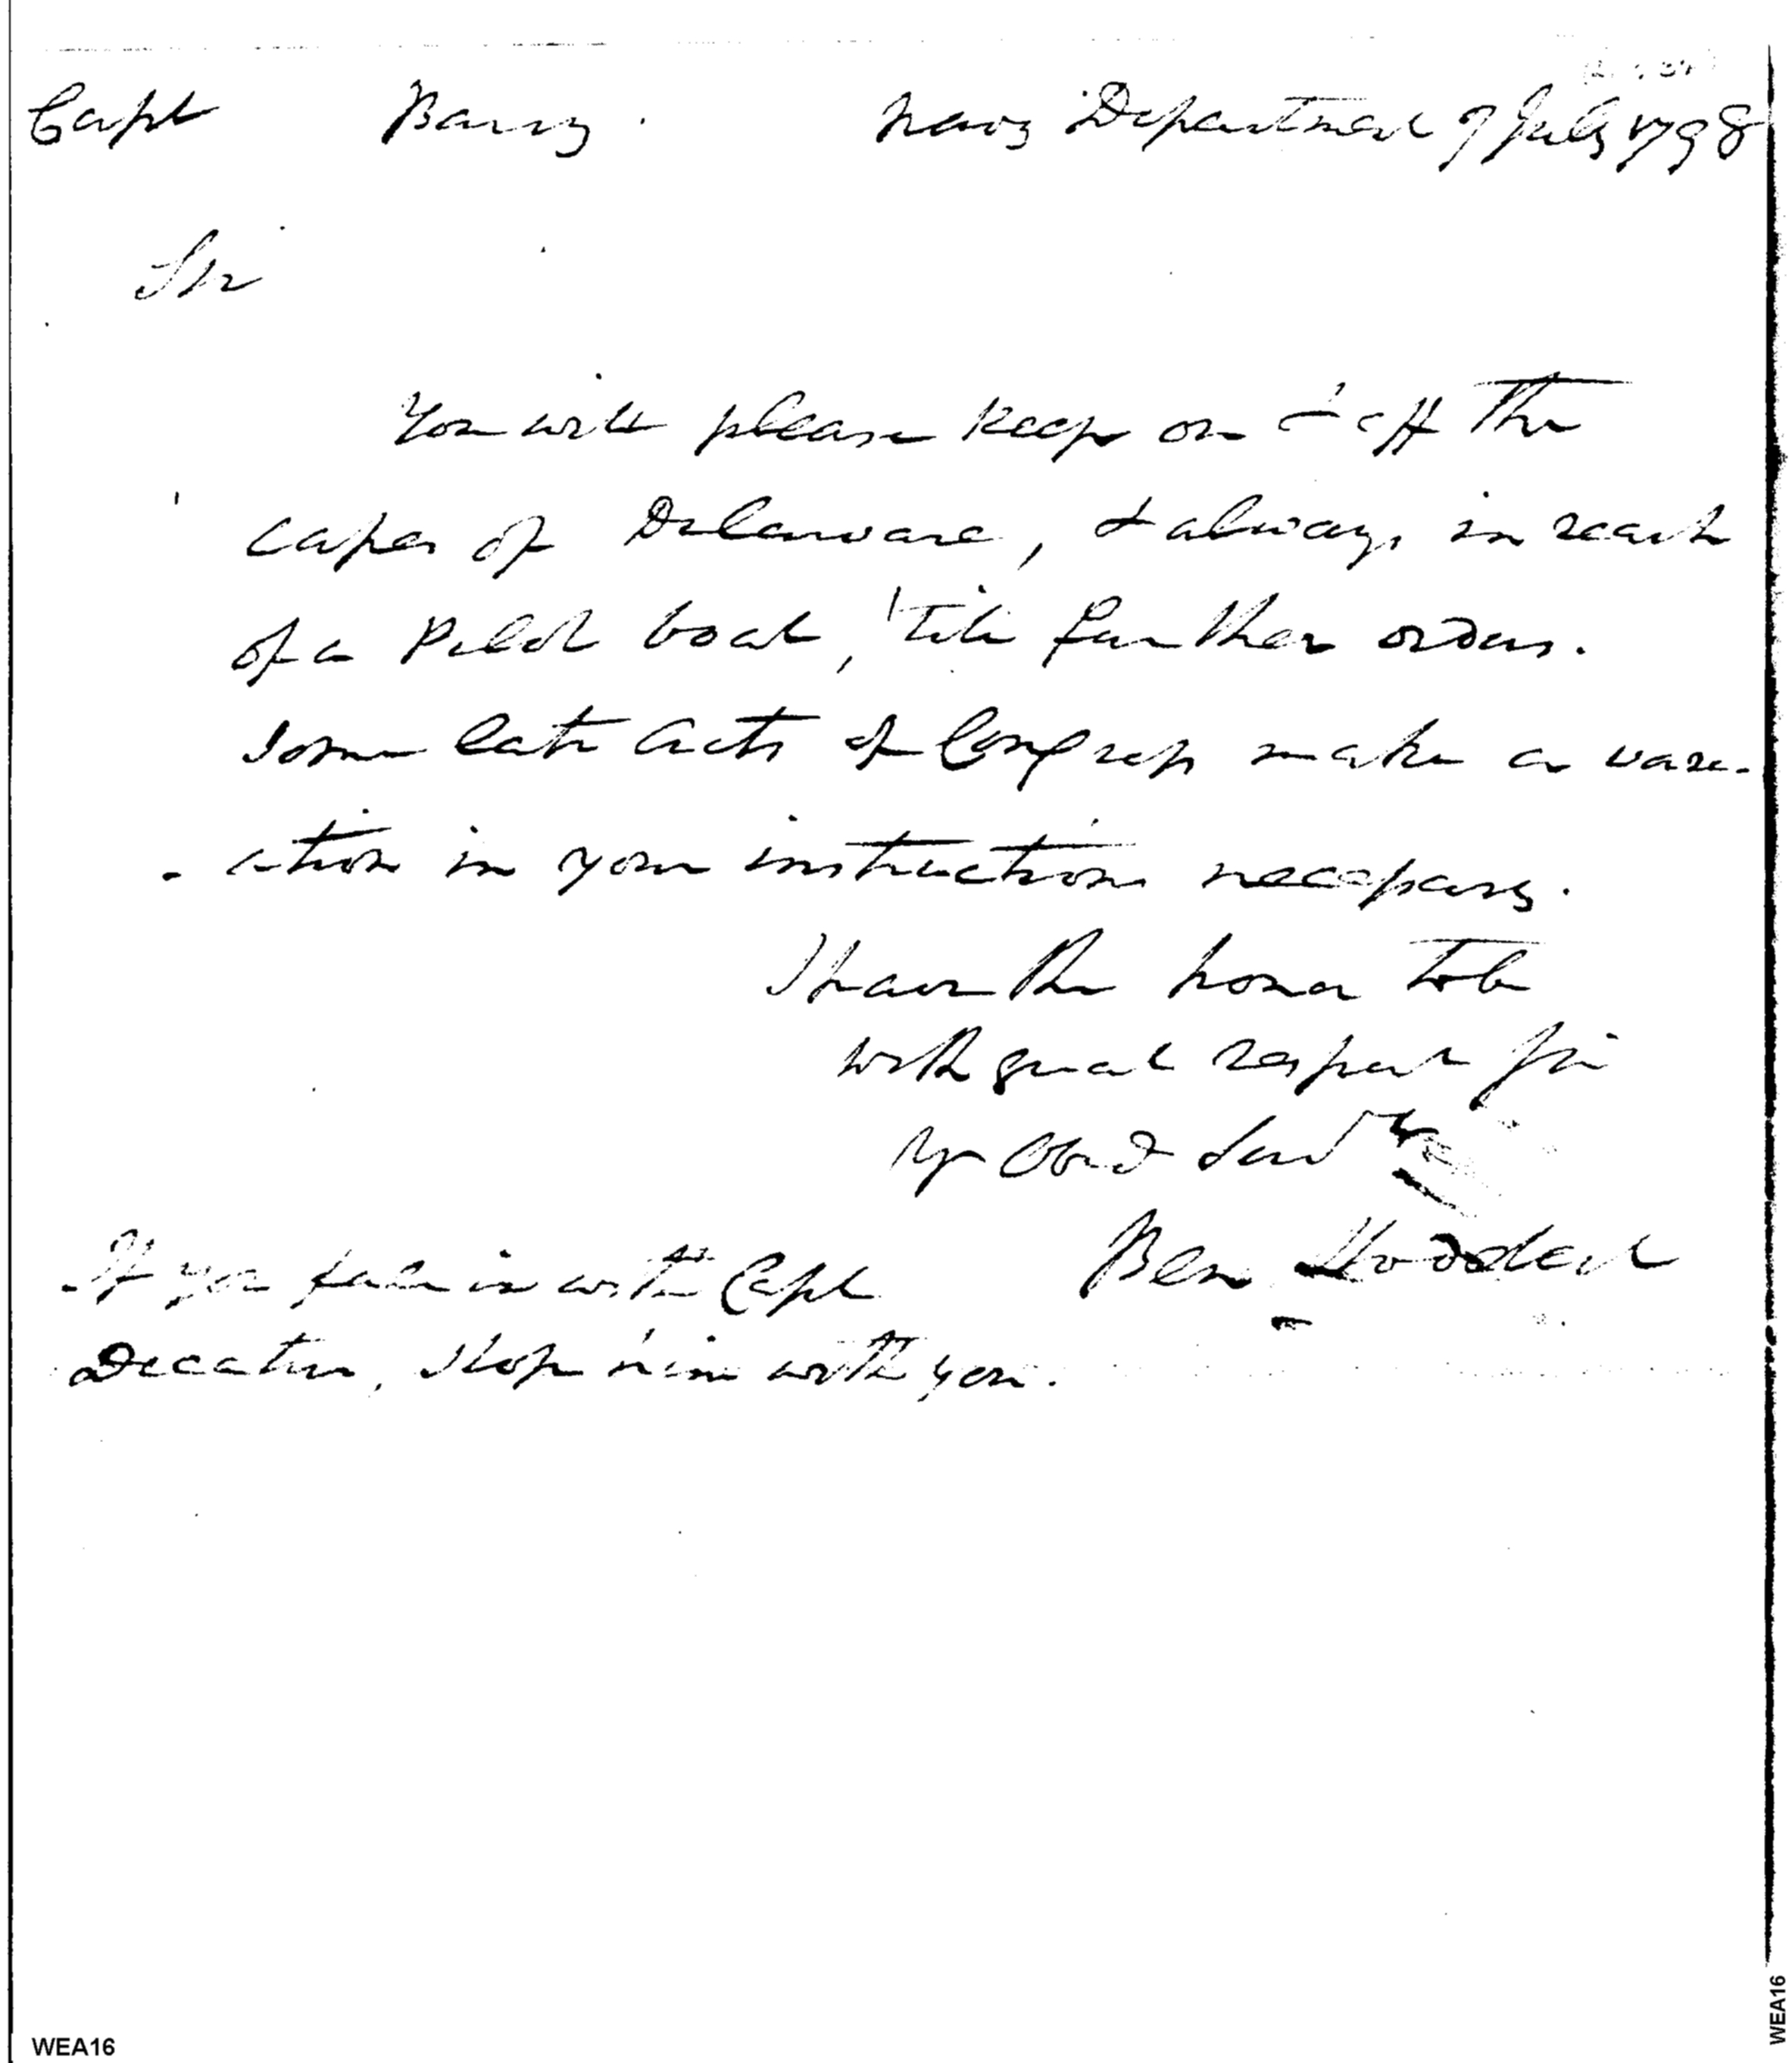 Capt Barry. Navy Department 9 July 1798
Sir
You will please keep on & off the
capes of Delaware, & always in reach
of a Pilot boat, 'till further orders.
Some late Acts of Congress make a vari-
-ation in your instructions necessary.
I have the honor to be
with great respect Sir
yr Obed Servt
Ben Stoddert
If you fall in with Capt
Decatur, stop him with you.
WEA16
WEA16